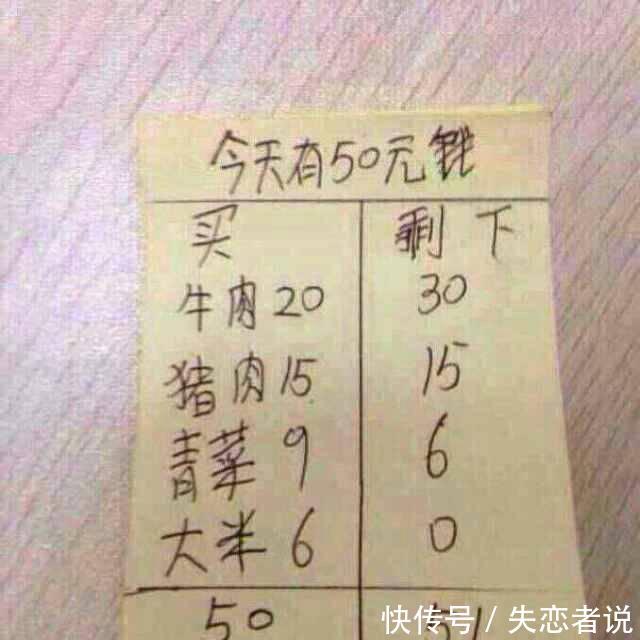 今天有50元钱
买 剩下
牛肉20 30
猪肉15 15
青菜9 6
大米6 0
50 51
快传号/失恋者说